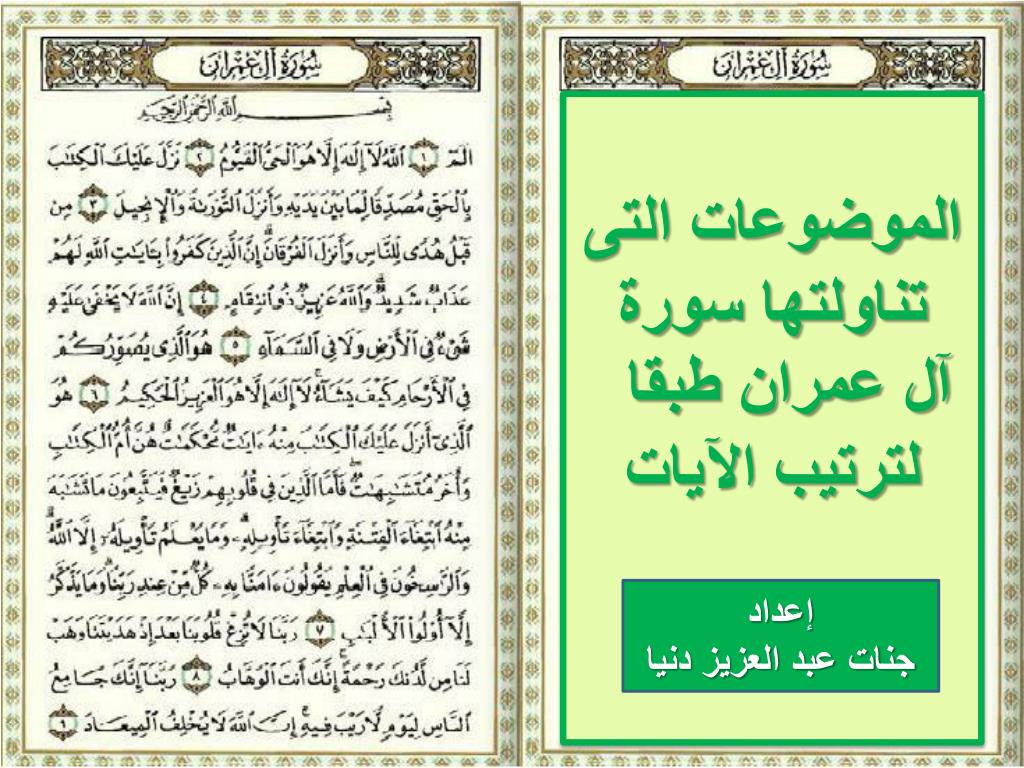 سُورَةُ آلِ عِمْرَانَ
الموضوعات التى
تناولتها سورة
آل عمران طبقا
لترتيب الآيات
إعداد
جنات عبد العزيز دنيا
سُورَةُ آلِ عِمْرَانَ
بِسْمِ اللَّهِ الرَّحْمَٰنِ الرَّحِيمِ
الٓمٓ ١ ٱللَّهُ لَآ إِلَٰهَ إِلَّا هُوَ ٱلْحَىُّ ٱلْقَيُّومُ ٢ نَزَّلَ عَلَيْكَ ٱلْكِتَٰبَ
بِٱلْحَقِّ مُصَدِّقًا لِّمَا بَيْنَ يَدَيْهِ وَأَنزَلَ ٱلتَّوْرَىٰةَ وَٱلْإِنجِيلَ ٣ مِن
قَبْلُ هُدًى لِّلنَّاسِ وَأَنزَلَ ٱلْفُرْقَانَ ۗ إِنَّ ٱلَّذِينَ كَفَرُوا۟ بِـَٔايَٰتِ ٱللَّهِ لَهُمْ
عَذَابٌ شَدِيدٌ ۗ وَٱللَّهُ عَزِيزٌ ذُو ٱنتِقَامٍ ٤ إِنَّ ٱللَّهَ لَا يَخْفَىٰ عَلَيْهِ
شَىْءٌ فِى ٱلْأَرْضِ وَلَا فِى ٱلسَّمَآءِ ٥ هُوَ ٱلَّذِى يُصَوِّرُكُمْ
فِى ٱلْأَرْحَامِ كَيْفَ يَشَآءُ ۚ لَآ إِلَٰهَ إِلَّا هُوَ ٱلْعَزِيزُ ٱلْحَكِيمُ ٦ هُوَ
ٱلَّذِىٓ أَنزَلَ عَلَيْكَ ٱلْكِتَٰبَ مِنْهُ ءَايَٰتٌ مُّحْكَمَٰتٌ هُنَّ أُمُّ ٱلْكِتَٰبِ
وَأُخَرُ مُتَشَٰبِهَٰتٌ ۖ فَأَمَّا ٱلَّذِينَ فِى قُلُوبِهِمْ زَيْغٌ فَيَتَّبِعُونَ مَا تَشَٰبَهَ
مِنْهُ ٱبْتِغَآءَ ٱلْفِتْنَةِ وَٱبْتِغَآءَ تَأْوِيلِهِۦ ۗ وَمَا يَعْلَمُ تَأْوِيلَهُۥٓ إِلَّا ٱللَّهُ ۗ
وَٱلرَّٰسِخُونَ فِى ٱلْعِلْمِ يَقُولُونَ ءَامَنَّا بِهِۦ كُلٌّ مِّنْ عِندِ رَبِّنَا ۗ وَمَا يَذَّكَّرُ
إِلَّآ أُو۟لُوا۟ ٱلْأَلْبَٰبِ ٧ رَبَّنَا لَا تُزِغْ قُلُوبَنَا بَعْدَ إِذْ هَدَيْتَنَا وَهَبْ
لَنَا مِن لَّدُنكَ رَحْمَةً ۚ إِنَّكَ أَنتَ ٱلْوَهَّابُ ٨ رَبَّنَآ إِنَّكَ جَامِعُ
ٱلنَّاسِ لِيَوْمٍ لَّا رَيْبَ فِيهِ ۚ إِنَّ ٱللَّهَ لَا يُخْلِفُ ٱلْمِيعَادَ ٩